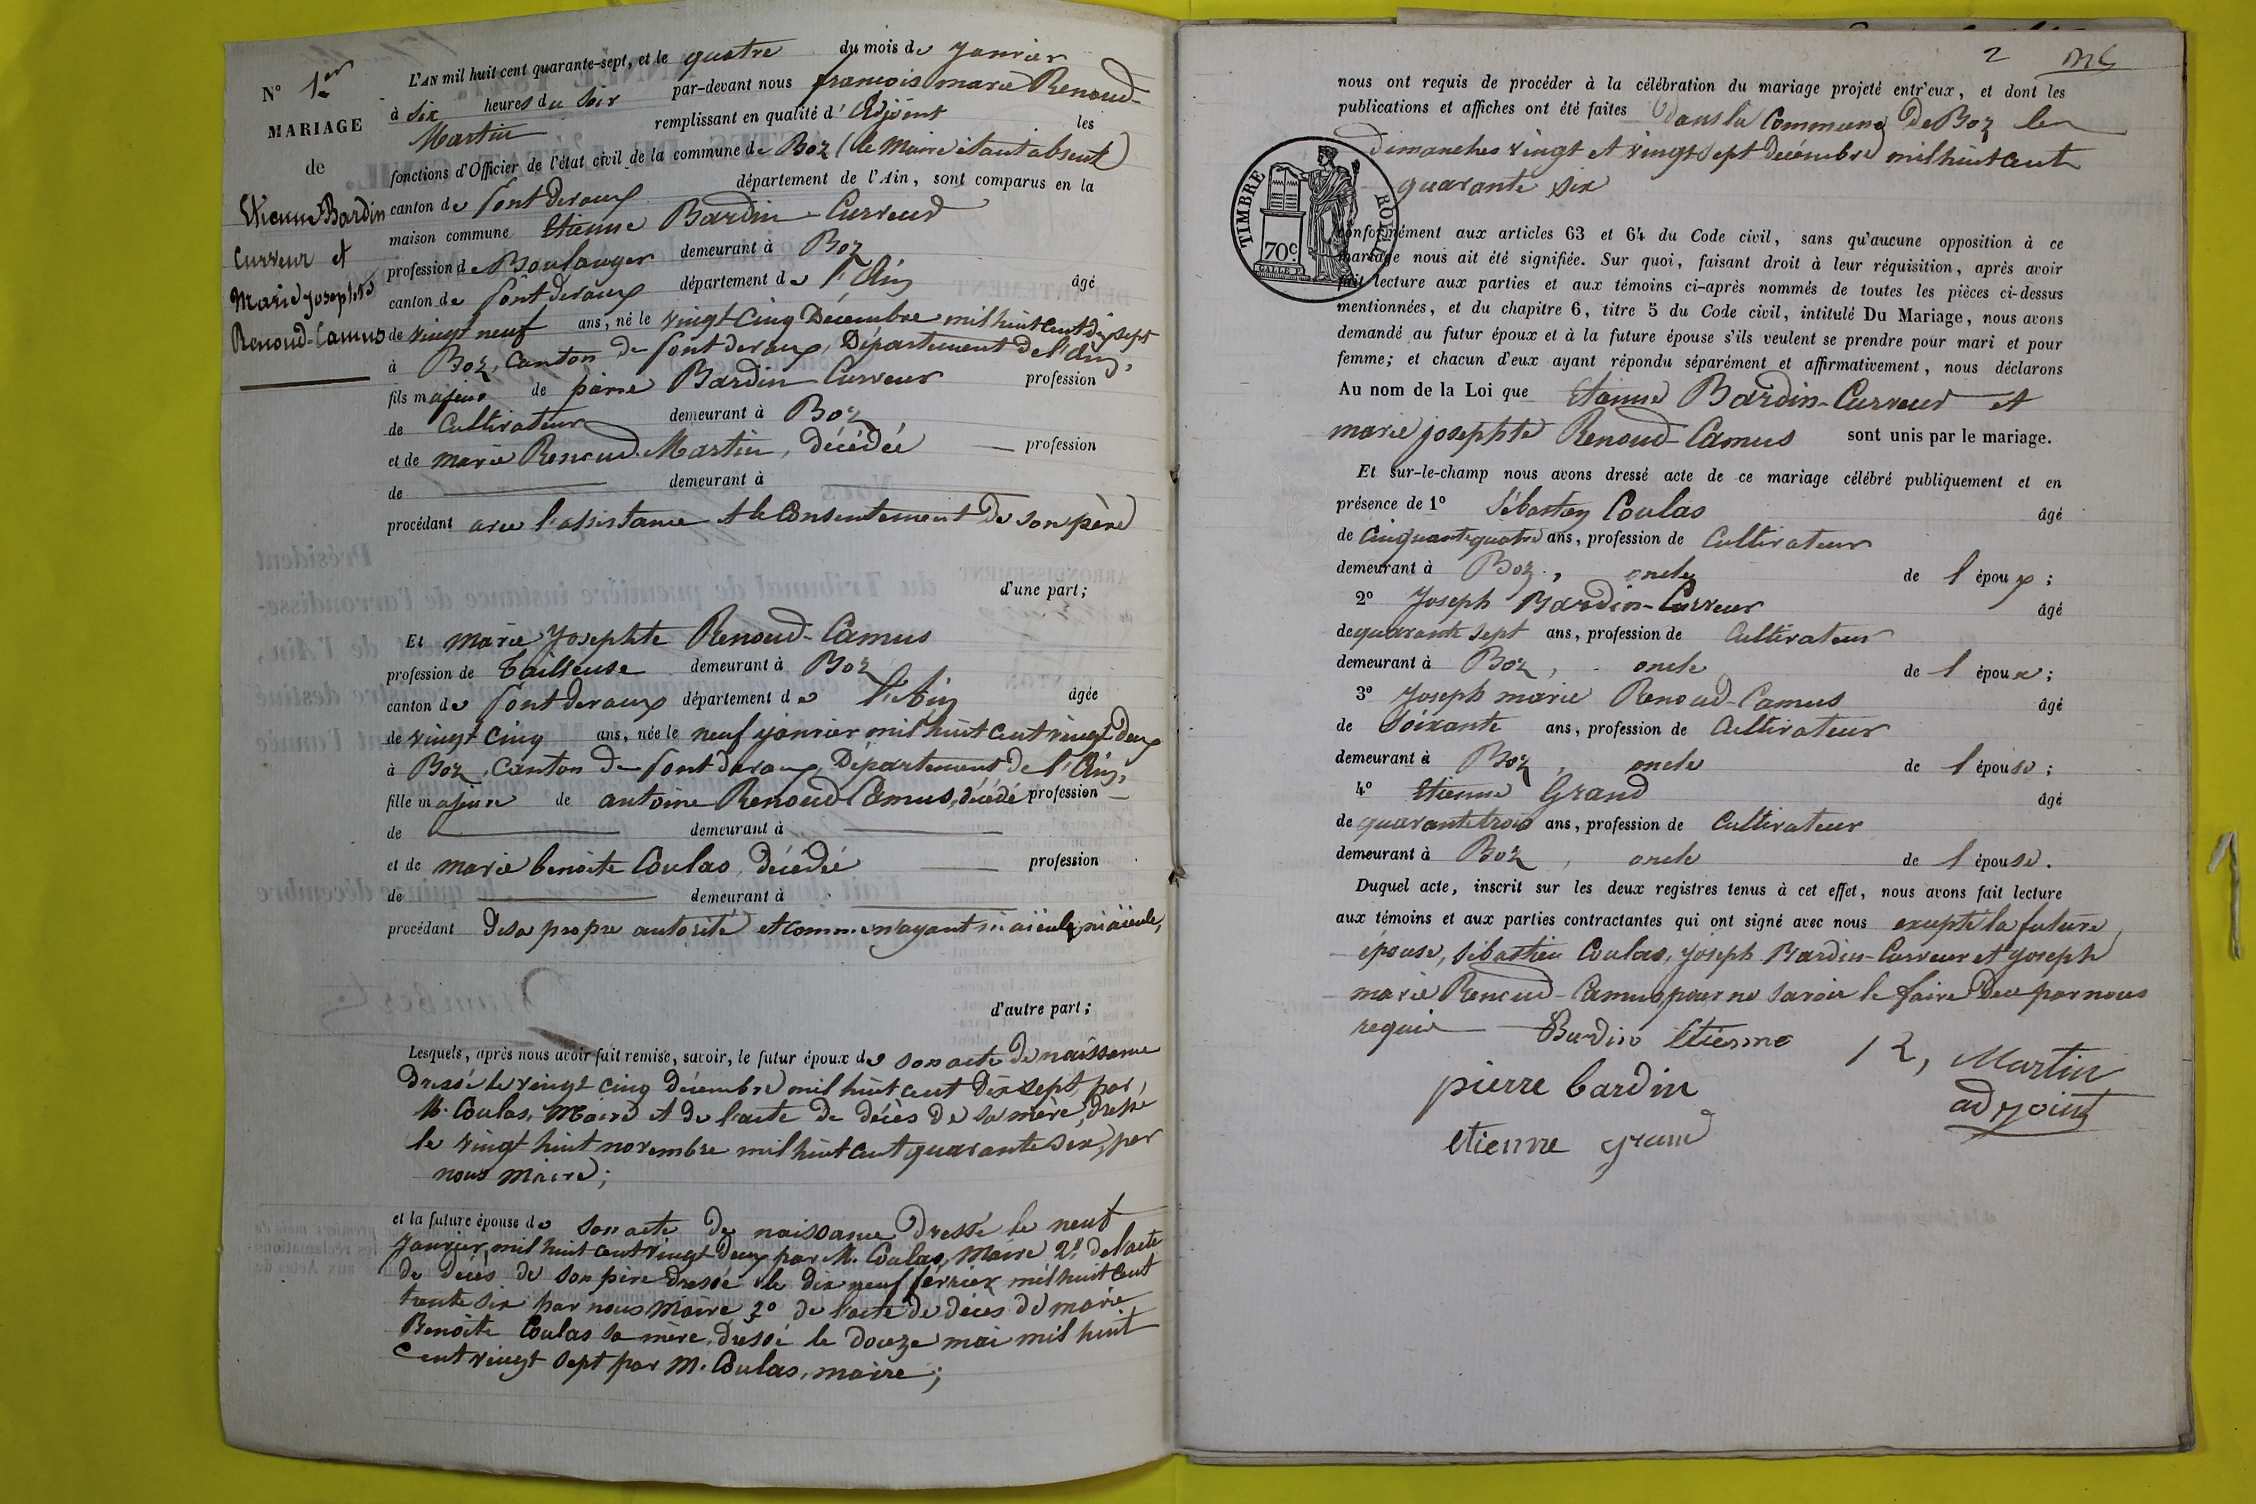 N° 1er
MARIAGE
de
Etienne Bardin
Curveur et
Marie Josephte
Renoud-Camus
L'AN mil huit cent quarante-sept, et le quatre du mois de Janvier
à six heures du soir par-devant nous françois marie Renoud-
Martin remplissant en qualité d'Adjoint les
fonctions d'Officier de l'état civil de la commune de Boz (le Maire étant absent)
canton de Pontdevaux département de l'Ain, sont comparus en la
maison commune Etienne Bardin-Curveur
profession de Boulanger demeurant à Boz
canton de Pontdevaux département de l'Ain âgé
de vingt neuf ans, né le vingt cinq Décembre mil huit cent dix sept
à Boz, Canton de Pontdevaux, Département de l'Ain,
fils majeur de pierre Bardin-Curveur profession
de Cultivateur demeurant à Boz
et de marie Renoud-Martin, décédée profession
de demeurant à
procédant avec l'assistance et le Consentement De son père
d'une part;
Et marie Josephte Renoud-Camus
profession de tailleuse demeurant à Boz
canton de Pontdevaux département de l'Ain âgée
de vingt cinq ans, née le neuf janvier mil huit cent vingt deux
à Boz, Canton de Pontdevaux, Département de l'Ain,
fille majeure de antoine Renoud-Camus, décédé profession
de demeurant à
et de marie benoite Coulas, décédée profession
de demeurant à
procédant De sa propre autorité et comme n'ayant ni aïeul, ni aïeule,
d'autre part;
Lesquels, après nous avoir fait remise, savoir, le futur époux de son acte de naissance
Dressé le vingt cinq décembre mil huit cent dix sept, par
M. Coulas, Maire et de l'acte de décès de sa mère, dressé
le vingt huit novembre mil huit cent quarante six, par
nous Maire;
et la future épouse de son acte de naissance dressé le neuf
Janvier mil huit cent vingt deux par M. Coulas, Maire 2° de l'acte
de décès de son père dressé le dix neuf février mil huit cent
trente six par nous Maire, 3° de l'acte de décès de marie
Benoite Coulas sa mère, dressé le douze mai mil huit
cent vingt sept par M. Coulas, maire;
2
nous ont requis de procéder à la célébration du mariage projeté entr'eux, et dont les
publications et affiches ont été faites dans la Commune De Boz les
dimanches vingt et vingt sept décembre mil huit cent
quarante six
TIMBRE ROYAL
70c
conformément aux articles 63 et 64 du Code civil, sans qu'aucune opposition à ce
mariage nous ait été signifiée. Sur quoi, faisant droit à leur réquisition, après avoir
fait lecture aux parties et aux témoins ci-après nommés de toutes les pièces ci-dessus
mentionnées, et du chapitre 6, titre 5 du Code civil, intitulé Du Mariage, nous avons
demandé au futur époux et à la future épouse s'ils veulent se prendre pour mari et pour
femme; et chacun d'eux ayant répondu séparément et affirmativement, nous déclarons
Au nom de la Loi que Etienne Bardin-Curveur et
marie josephte Renoud-Camus sont unis par le mariage.
Et sur-le-champ nous avons dressé acte de ce mariage célébré publiquement et en
présence de 1° Sébastien Coulas âgé
de Cinquante quatre ans, profession de Cultivateur
demeurant à Boz, oncle de l'époux;
2° Joseph Bardin-Curveur âgé
de quarante sept ans, profession de Cultivateur
demeurant à Boz, oncle de l'époux;
3° Joseph marie Renoud-Camus âgé
de Soixante ans, profession de Cultivateur
demeurant à Boz, oncle de l'épouse;
4° Etienne Grand âgé
de quarante trois ans, profession de Cultivateur
demeurant à Boz, oncle de l'épouse.
Duquel acte, inscrit sur les deux registres tenus à cet effet, nous avons fait lecture
aux témoins et aux parties contractantes qui ont signé avec nous excepté la future
épouse, Sébastien Coulas, Joseph Bardin-Curveur et Joseph
marie Renoud-Camus, pour ne savoir le faire De ce par nous
requis Bardin Etienne
R, Martin
adjoint
pierre bardin
etienne grand